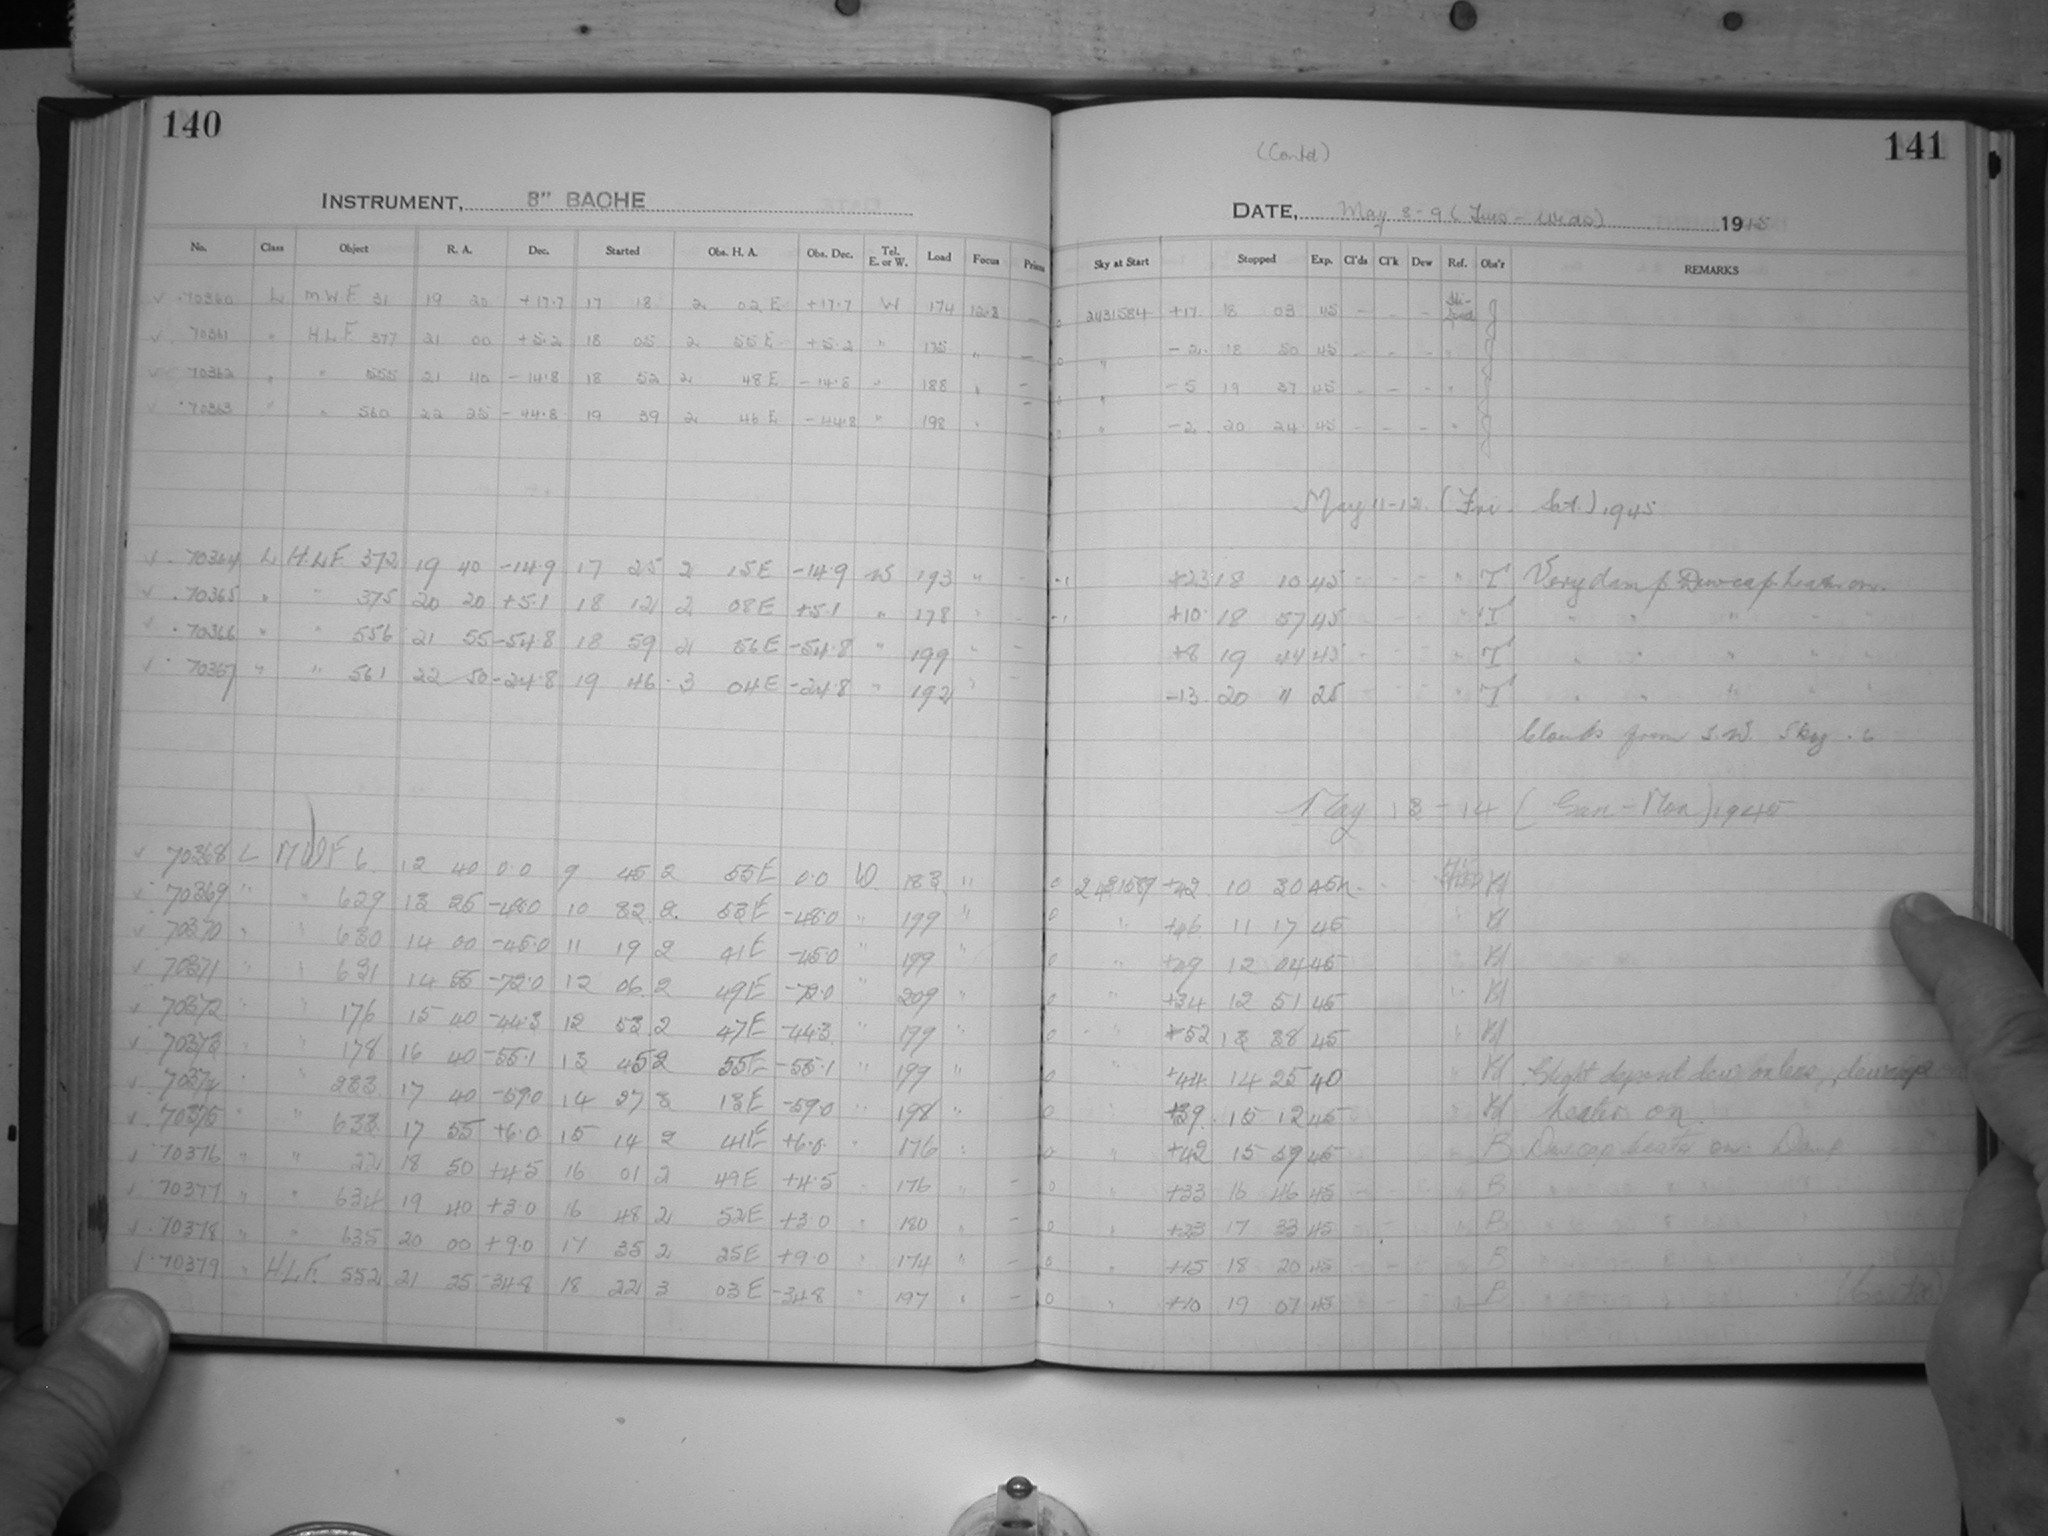 140
141
(Contd)
INSTRUMENT, 8" BACHE
DATE, May 8-9 (Tues - Weds) 1945
No. Class Object R. A. Dec. Started Obs. H. A. Obs. Dec. Tel. E. or W. Load Focus Prism Sky at Start Stopped Exp. Cl'ds Cl'k Dew Ref. Obs'r REMARKS
70360 L MWF 31 19 20 +17.7 17 18 2 02 E +17.7 W 174 12.8 — 0 2431584 +17 18 03 45 - - - J
70361 " HLF 377 21 00 +5.2 18 05 2 55 E +5.2 " 175 " — 0 " -2 18 50 45 - - - " J
70362 " " 555 21 40 -14.8 18 52 2 48 E -14.8 " 188 " — 0 " -5 19 37 45 - - - " J
70363 " " 560 22 25 -44.8 19 39 2 46 E -44.8 " 198 " — 0 " -2 20 24 45 - - - " J
May 11-12. (Fri - Sat.) 1945
70364 L H.L.F. 372 19 40 -14.9 17 25 2 15 E -14.9 W 193 " - -1 +23 18 10 45 - - - " T Very damp. Dewcap heater on.
70365 " " 375 20 20 +5.1 18 12 2 08 E +5.1 " 178 " - -1 +10 18 57 45 - - - " T " " " " "
70366 " " 556 21 55 -54.8 18 59 2 56 E -54.8 " 199 " - +8 19 44 45 - - - " T " " " " "
70367 " " 561 22 50 -24.8 19 46 3 04 E -24.8 " 192 " - -13 20 11 25 - - - " T " " " " "
Clouds from S.W. Sky .6
May 13 - 14 (Sun - Mon) 1945
70368 L MWF 6 12 40 0.0 9 45 2 55 E 0.0 W 183 " 0 2431589 +42 10 30 45 Kl
70369 " " 629 13 25 -48.0 10 32 2 53 E -48.0 " 199 " 0 " +46 11 17 45 " Kl
70370 " " 630 14 00 -45.0 11 19 2 41 E -45.0 " 199 " 0 " +49 12 04 45 " Kl
70371 " " 631 14 55 -72.0 12 06 2 49 E -72.0 " 209 " 0 " +34 12 51 45 " Kl
70372 " " 176 15 40 -44.3 12 53 2 47 E -44.3 " 199 " 0 " +52 13 38 45 " Kl
70373 " " 178 16 40 -55.1 13 45 2 55 E -55.1 " 199 " 0 " +44 14 25 40 " Kl Slight deposit dew on lens, dewcap
70374 " " 283 17 40 -59.0 14 27 3 13 E -59.0 " 198 " 0 " +39 15 12 45 " Kl heater on.
70375 " " 633 17 55 +6.0 15 14 2 41 E +6.0 " 176 " 0 " +42 15 59 45 B Dewcap heater on. Damp
70376 " " 221 18 50 +4.5 16 01 2 49 E +4.5 " 176 " - 0 " +33 16 46 45 " B
70377 " " 634 19 40 +3.0 16 48 2 52 E +3.0 " 180 " - 0 " +23 17 33 45 " B
70378 " " 635 20 00 +9.0 17 35 2 25 E +9.0 " 174 " - 0 " +15 18 20 45 " B
70379 " H.L.F. 552 21 25 -34.8 18 22 3 03 E -34.8 " 197 " - 0 " +10 19 07 45 " B (Contd)